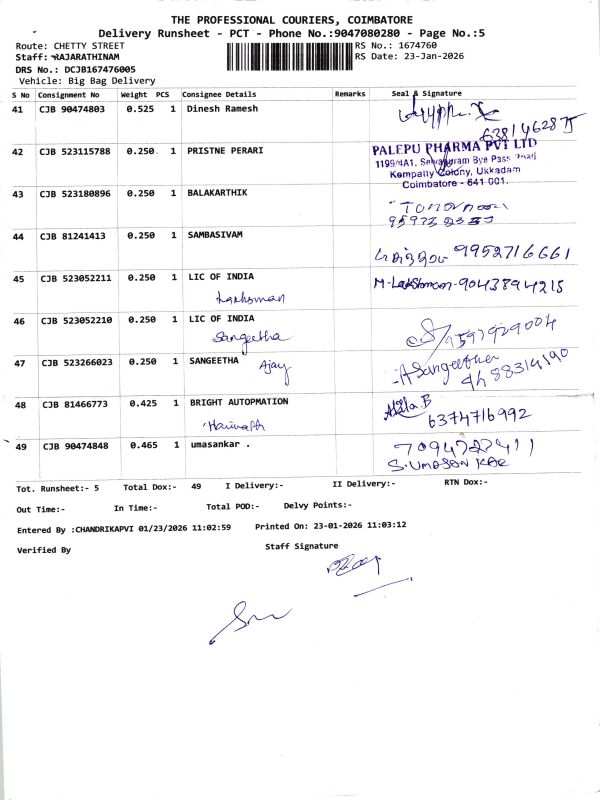 THE PROFESSIONAL COURIERS, COIMBATORE
Delivery Runsheet - PCT - Phone No.:9047080280 - Page No.:5
Route: CHETTY STREET
RS No.: 1674760
Staff: RAJARATHINAM
RS Date: 23-Jan-2026
DRS No.: DCJB167476005
Vehicle: Big Bag Delivery
S No Consignment No Weight PCS Consignee Details Remarks Seal & Signature
41 CJB 90474803 0.525 1 Dinesh Ramesh
42 CJB 523115788 0.250 1 PRISTNE PERARI
PALEPU PHARMA PVT LTD
1199/4A1, Sevagram Bye Pass Road
Kempatty Colony, Ukkadam
Coimbatore - 641 001.
43 CJB 523180896 0.250 1 BALAKARTHIK
44 CJB 81241413 0.250 1 SAMBASIVAM
9952716661
45 CJB 523052211 0.250 1 LIC OF INDIA
Lakhsman
M-Lakshmanan-9043894215
46 CJB 523052210 0.250 1 LIC OF INDIA
Sangeetha
47 CJB 523266023 0.250 1 SANGEETHA
Ajay
A Sangeetha
48 CJB 81466773 0.425 1 BRIGHT AUTOPMATION
6374716992
49 CJB 90474848 0.465 1 umasankar .
Tot. Runsheet:- 5 Total Dox:- 49 I Delivery:- II Delivery:- RTN Dox:-
Out Time:- In Time:- Total POD:- Delvy Points:-
Entered By :CHANDRIKAPVI 01/23/2026 11:02:59 Printed On: 23-01-2026 11:03:12
Verified By Staff Signature